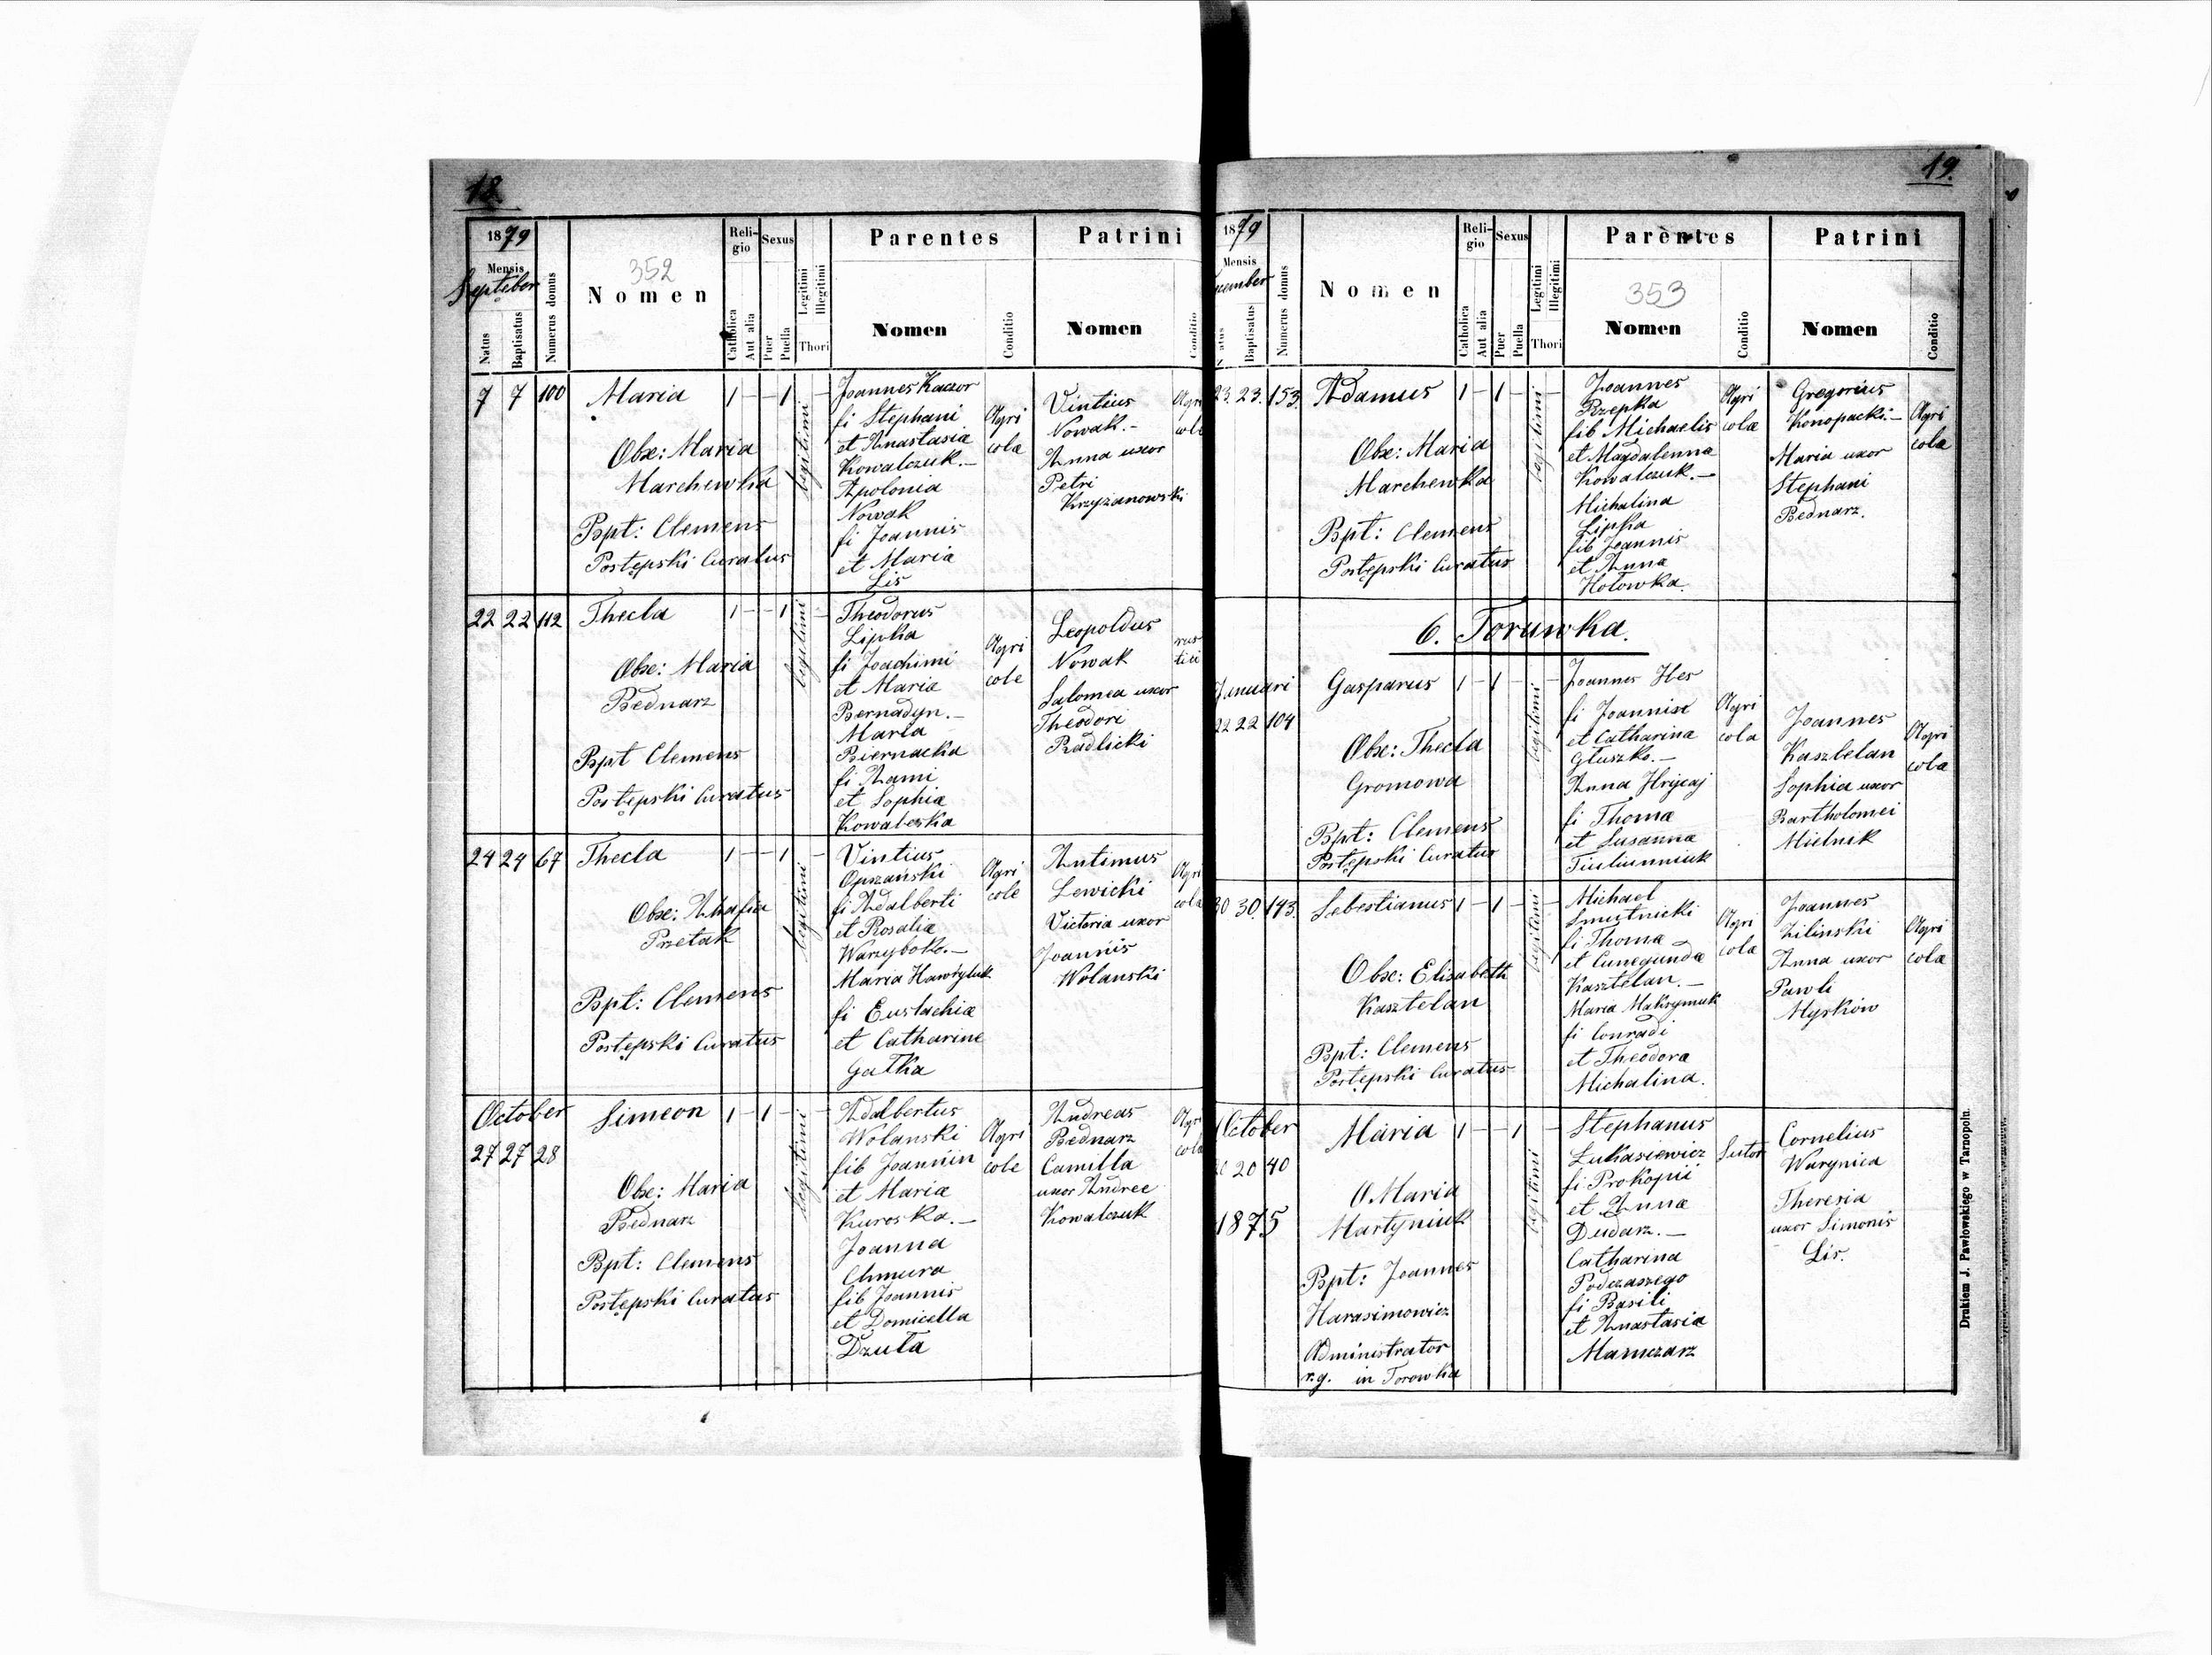 18.
1879
Mensis
Septeber
Natus
Baptisatus
Numerus domus
352
Nomen
Religio
Catholica
Aut alia
Sexus
Puer
Puella
Legitimi
Illegitimi
Thori
Parentes
Nomen
Conditio
Patrini
Nomen
Conditio
7 7 100
Maria
Obx: Maria
Marchewka
Bpt: Clemens
Postępski Curatus
legitimi
Joannes Kaczor
fi Stephani
et Anastasia
Kowalczuk.-
Apolonia
Nowak
fi Joannis
et Maria
Lis
Agri
cola
Vintius
Nowak.-
Anna uxor
Petri
Krzyżanowski
22 22 112
Thecla
Obx: Maria
Bednarz
Bpt Clemens
Postępski Curatus
legitimi
Theodorus
Lipka
fi Joachimi
et Maria
Bernadyn.-
Maria
Biernacka
fi Adami
et Sophia
Kowaleska
Agri
cole
Leopoldus
Nowak
Salomea uxor
Theodori
Radlicki
rus
tici
24 24 67
Thecla
Obx:
Przetak
Bpt: Clemens
Postępski Curatus
legitimi
Vintius
Oprzański
fi Adalberti
et Rosalia
Warzybok.-
Maria Hawryluk
fi Eustachia
et Catharine
Gałka
Agri
cole
Antimus
Lewicki
Victoria uxor
Joannis
Wolanski
October
27 27 28
Simeon
Obx: Maria
Bednarz
Bpt: Clemens
Postępski Curatus
legitimi
Adalbertus
Wolanski
fib Joannin
et Maria
Kuroska.-
Joanna
Chmura
fib Joannis
et Domicella
Dzuła
Agri
cole
Andreas
Bednarz
Camilla
uxor Andree
Kowalczuk
19.
1879
Mensis
Baptisatus
Numerus domus
Nomen
Religio
Catholica
Aut alia
Sexus
Puer
Puella
Legitimi
Illegitimi
Thori
Parentes
353
Nomen
Conditio
Patrini
Nomen
Conditio
23. 23. 153.
Adamus
Obx: Maria
Marchewka
Bpt: Clemens
Postępski Curatus
legitimi
Joannes
Rzepka
fib Michaelis
et Magdalenna
Kowalczuk.-
Michalina
Lipka
fib Joannis
et Anna
Hołowka.
Agri
cola
Gregorius
Konopacki.-
Maria uxor
Stephani
Bednarz.
Agri
cola
6. Toruwka.
Januari
22 22 104
Gasparus
Obx: Thecla
Gromowa
Bpt: Clemens
Postępski Curatus
legitimi
Joannes Hes
fi Joannis
et Catharina
Głuszko.-
Anna Hrycaj
fi Thoma
et Susanna
Tiutiunniuk
Agri
cola
Joannes
Kasztelan
Sophia uxor
Bartholomei
Mielnik
Agri
cola
30 30. 143.
Sebestianus
Obx: Elisabeth
Kasztelan
Bpt: Clemens
Postępski Curatus
legitimi
Michael
Smutnicki
fi Thoma
et Cunegunda
Kasztelan.-
Maria Maksymuk
fi Conradi
et Theodora
Michalina.
Agri
cola
Joannes
Zilinski
Anna uxor
Pawli
Myśków
Agri
cola
October
20 40
1875
Maria
O Maria
Martyniuk
Bpt: Joannes
Harasimowicz
Administrator
r.g. in Torowka
legitimi
Stephanus
Łukasiewicz
fi Prokopii
et Anna
Dudarz.-
Catharina
Podczaszego
fi Basili
et Anastasia
Mamczarz
Sutor
Cornelius
Warynica
Theresia
uxor Simonis
Lis.
Drukiem J. Pawłowskiego w Tarnopolu.